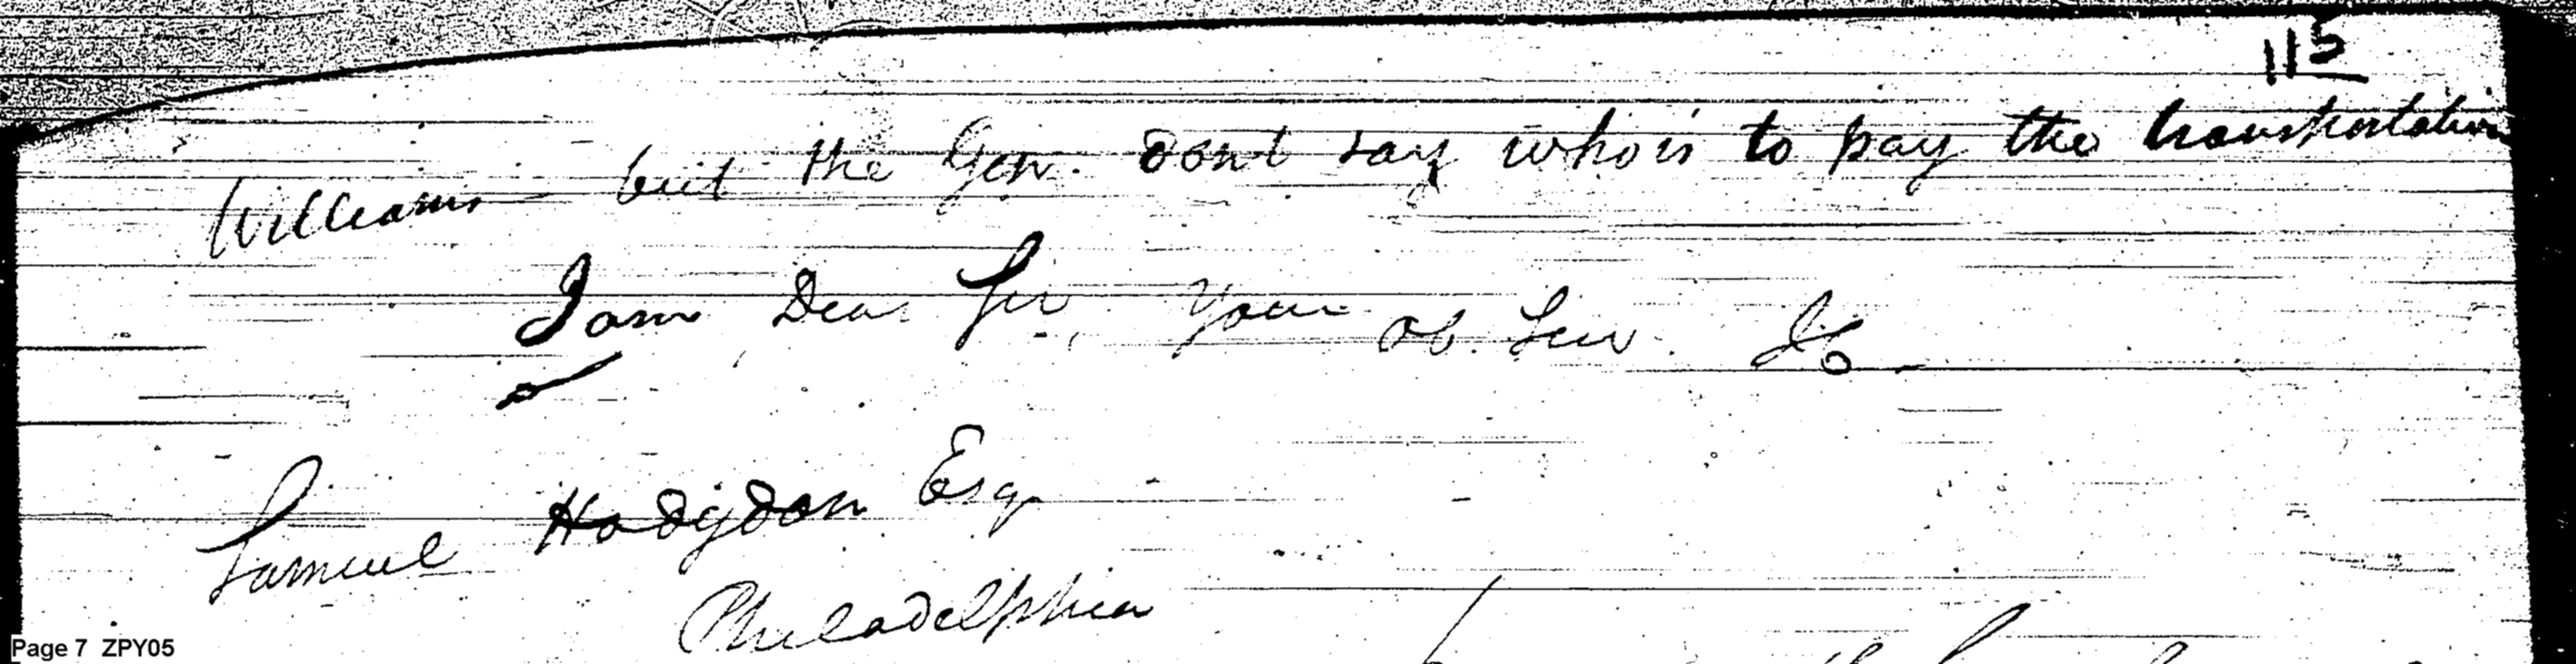 115
Williams but the Gen. dont say who is to pay the transportation
I am Dear Sir, Your ob. Ser.
Samuel Hodgdon Esqr
Philadelphia
Page 7 ZPY05